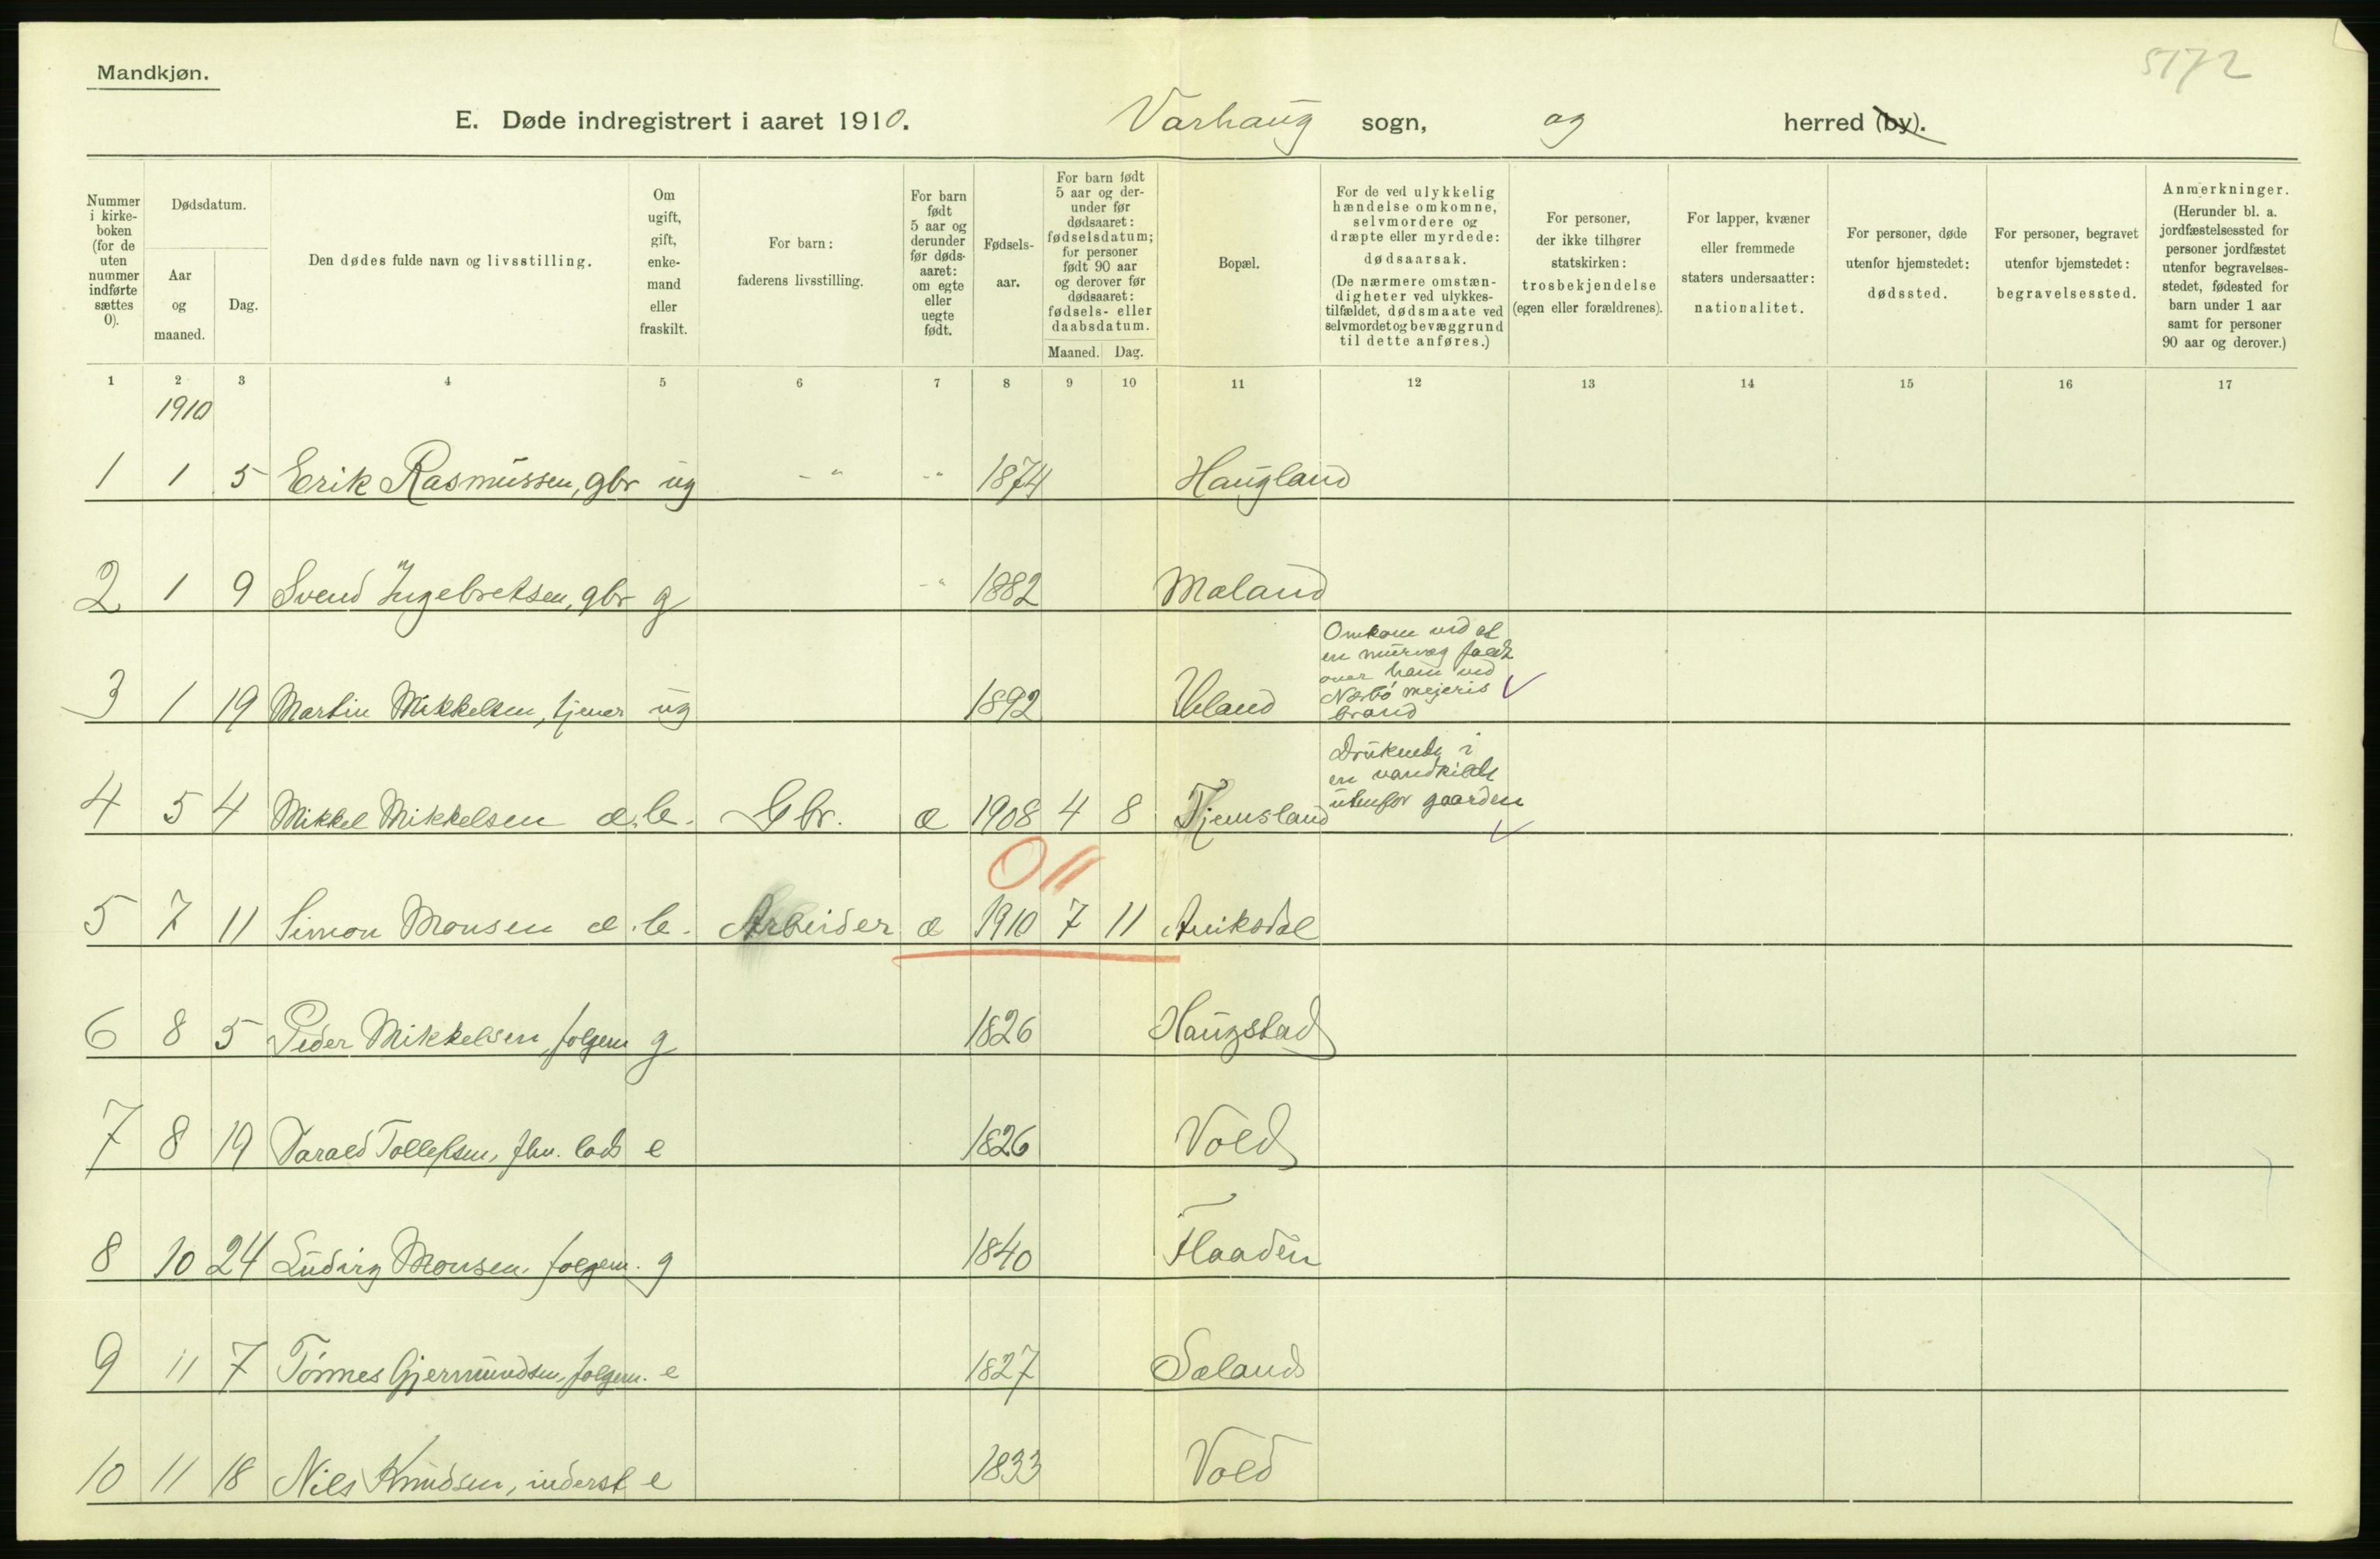 5172
Mandkjøn.
E. Døde indregistrert i aaret 1910. Varhaug sogn, og herred (by).
Nummer i kirkeboken (for de uten nummer indførte sættes 0).
Dødsdatum.
Aar og maaned.
Dag.
Den dødes fulde navn og livsstilling.
Om ugift, gift, enkemand eller fraskilt.
For barn: faderens livsstilling.
For barn født 5 aar og derunder før dødsaaret: om egte eller uegte født.
Fødselsaar.
For barn født 5 aar og derunder før dødsaaret: fødselsdatum; for personer født 90 aar og derover før dødsaaret: fødsels- eller daabsdatum.
Maaned. Dag.
Bopæl.
For de ved ulykkelig hændelse omkomne, selvmordere og dræpte eller myrdede: dødsaarsak. (De nærmere omstændigheter ved ulykkestilfældet, dødsmaate ved selvmordet og bevæggrund til dette anføres.)
For personer, der ikke tilhører statskirken: trosbekjendelse (egen eller forældrenes).
For lapper, kvæner eller fremmede staters undersaatter: nationalitet.
For personer, døde utenfor hjemstedet: dødssted.
For personer, begravet utenfor bjemstedet: begravelsessted.
Anmerkninger. (Herunder bl. a. jordfæstelsessted for personer jordfæstet utenfor begravelsesstedet, fødested for barn under 1 aar samt for personer 90 aar og derover.)
1 2 3 4 5 6 7 8 9 10 11 12 13 14 15 16 17
1910
1 1 5 Erik Rasmussen, gbr ug - " - " 1874 Haugland
2 1 9 Svend Ingebretsen, gbr g - " 1882 Mæland
Omkom ved at
en murvæg faldt
over ham ved
Nærbø mejeris
brand
3 1 19 Martin Mikkelsen, tjener ug 1892 Ueland
Druknede i
en vandkilde
utenfor gaarden
4 5 4 Mikkel Mikkelsen æ. b. Gbr. æ 1908 4 8 Tjemsland
0 11
5 7 11 Simon Monsen æ. b. Arbeider æ 1910 7 11 Aniksdal
6 8 5 Peder Mikkelsen, folgem g 1826 Haugstad
7 8 19 Tarald Tollefsen, fhv. lods e 1826 Vold
8 10 24 Ludvig Monsen, folgem. g 1840 Flaaden
9 11 7 Tønnes Gjermundsen, folgem. e 1827 Sæland
10 11 18 Nils Knudsen, inderst e 1833 Vold